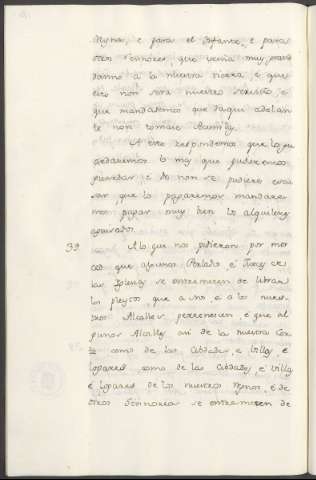 Reyna, e para el Infante, e para
otros Sennores, que venia muy grand
danno a la nuestra tierra, e que
esto non era nuestro servicio, e
que mandasemos que daqui adelan
te non tomase
A esto respondemos que lo gu
ardaremos lo mas que pudieremos
guardar e do non se pudiere escu
sar que lo pagaremos mandare
mos pagar muy bien los alquileres
aguisados.
39 A lo que nos pidieron por mer
ced que algunos Perlados, e Jueces de
las Iglesias se entremeten de librar
los pleytos, que a nos, e a los nues
tros Alcalles pertenecen, e que al
gunos Alcalles asi de la nuestra Cor
te como de las Cibdades, e Villas, e
logares como de las Cibdades, e Villas
e logares de los nuestros Regnos, e de
otros Sennorios se entremeten de